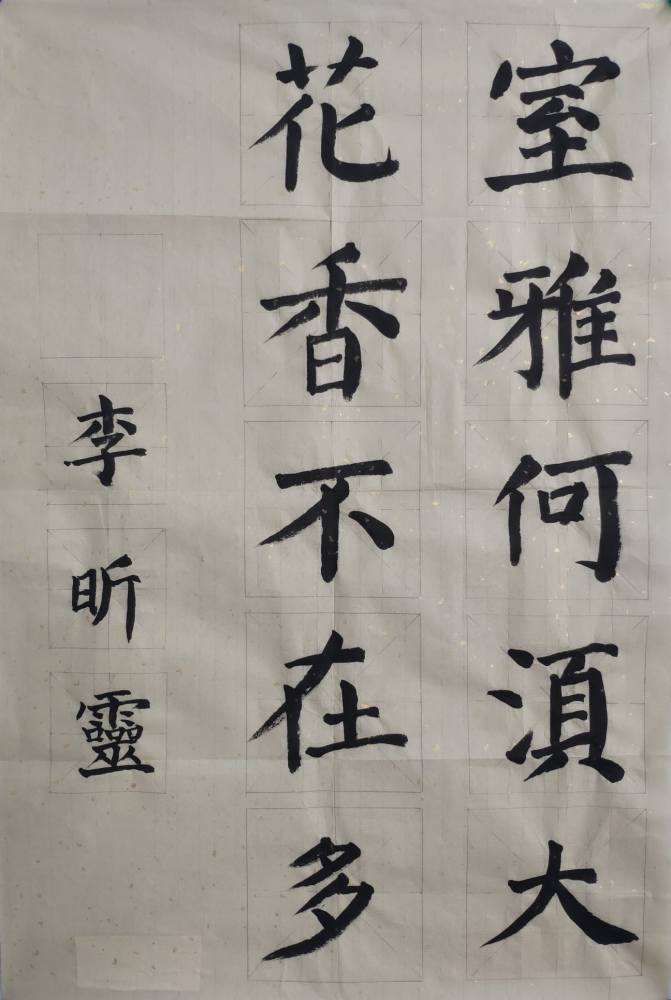 室雅何湏大
花香不在多
李昕靈